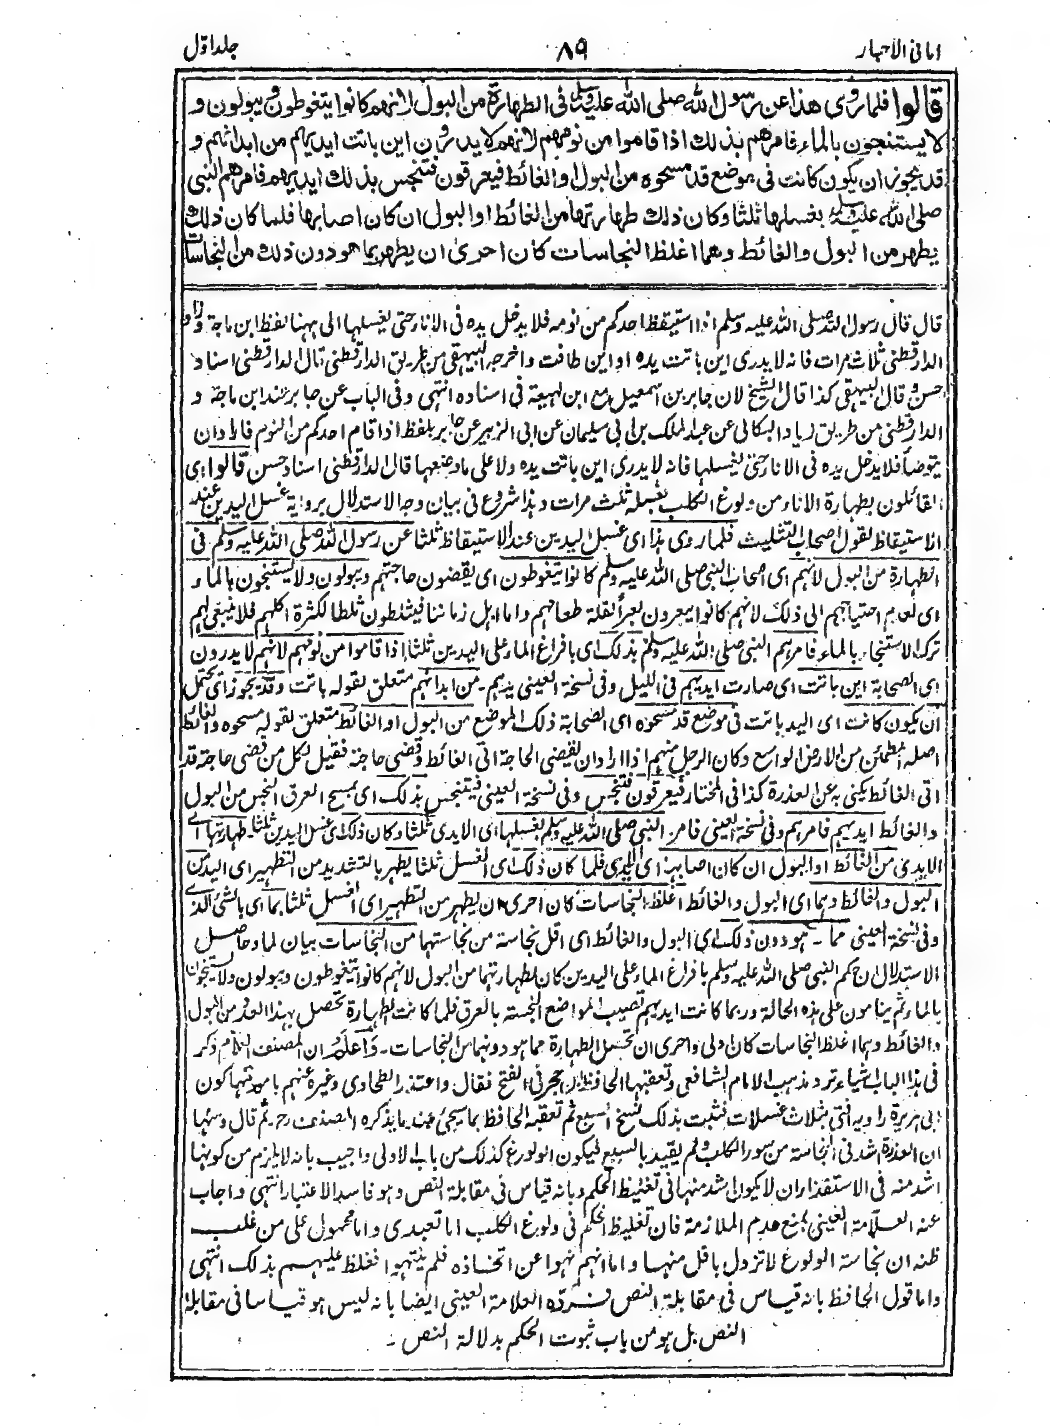 امانی الاحبار ۸۹ جلد اول
قالوا فلما روى هذا عن رسول الله صلى الله عليه وسلم فى الطهارة من البول لانهم كانوا يتغوطون ويبولون و
لا يستنجون بالماء فامرهم بذلك اذا قاموا من نومهم لانهم لا يدرون اين باتت ايديهم من ابدانهم و
قد يجوز ان يكون كانت فى موضع قد مسحوه من البول او الغائط فيعرقون فتنجس بذلك ايديهم فامرهم النبى
صلى الله عليه وسلم بغسلها ثلثا وكان ذلك طهارتها من الغائط او البول ان كان اصابها فلما كان ذلك
يطهر من البول والغائط وهما اغلظ النجاسات كان احرى ان يطهر بما هو دون ذلك من النجاسات
قال قال رسول الله صلى الله عليه وسلم اذا استيقظ احدكم من نومه فلا يدخل يده فى الاناء حتى يغسلها الى ههنا لفظ ابن ماجة وزاد
الدارقطنى ثلاث مرات فانه لا يدرى اين باتت يده او اين طافت واخرجه البيهقى من طريق الدارقطنى قال الدارقطنى اسناد
حسن وقال البيهقى كذا قال الشيخ لان جابر بن اسمعيل مع ابن لهيعة فى اسناده انتهى وفى الباب عن جابر عند ابن ماجة و
الدارقطنى من طريق زياد البكائى عن عبد الملك بن ابى سليمان عن ابى الزبير عن جابر بلفظ اذا قام احدكم من النوم فاراد ان
يتوضأ فلا يدخل يده فى الاناء حتى يغسلها فانه لا يدرى اين باتت يده ولا على ما وضعها قال الدارقطنى اسناد حسن قالوا اى
القائلون بطهارة الاناء من ولوغ الكلب بغسله ثلث مرات وهذا شروع فى بيان وجه الاستدلال برواية غسل اليدين عند
الاستيقاظ لقول اصحاب التثليث فلما روى هذا اى غسل اليدين عند الاستيقاظ ثلثا عن رسول الله صلى الله عليه وسلم فى
الطهارة من البول لانهم اى اصحاب النبى صلى الله عليه وسلم كانوا يتغوطون اى يقضون حاجتهم ويبولون ولا يستنجون بالماء و
اى لعدم احتياجهم الى ذلك لانهم كانوا يبعرون بعرا لقلة طعامهم واما اهل زماننا فيثلطون ثلطا لكثرة اكلهم فلا ينبغى لهم
ترك الاستنجاء بالماء فامرهم النبى صلى الله عليه وسلم بذلك اى بافراغ الماء على اليدين ثلثا اذا قاموا من نومهم لانهم لا يدرون
اى الصحابة اين باتت اى صارت ايديهم فى الليل وفى نسخة العينى يدهم - من ابدانهم متعلق لقوله باتت وقد يجوز اى يحتمل
ان يكون كانت اى اليد باتت فى موضع قد مسحوه اى الصحابة ذلك الموضع من البول او الغائط متعلق لقوله مسحوه والغائط
اصله المطمئن من الارض الواسع وكان الرجل منهم اذا اراد ان يقضى الحاجة اتى الغائط وقضى حاجته فقيل لكل من قضى حاجة قد
اتى الغائط يكنى به عن العذرة كذا فى المختار فيعرقون فتنجس وفى نسخة العينى فيتنجس بذلك اى بمسح العرق النجس من البول
والغائط ايديهم فامرهم وفى نسخة العينى فامر النبى صلى الله عليه وسلم بغسلها اى الايدى ثلثا وكان ذلك اى غسل اليدين ثلثا طهارتها اى
الايدى من الغائط او البول ان كان اصابها اى اليدى فلما كان ذلك اى الغسل ثلثا يطهر بالتشديد من التطهير اى اليدين من
البول والغائط وهما اى البول والغائط اغلظ النجاسات كان احرى ان يطهر من التطهير اى الغسل ثلثا بما اى بالشئ الذى
وفى نسخة العينى مما - هو دون ذلك اى البول والغائط اى اقل نجاسة من نجاستهما من النجاسات بيان لما وحاصل
الاستدلال ان حكم النبى صلى الله عليه وسلم بافراغ الماء على اليدين كان لطهارتهما من البول لانهم كانوا يتغوطون ويبولون ولا يستنجون
بالماء ثم ينامون على هذه الحالة وربما كانت ايديهم تصيب المواضع النجسة بالعرق فلما كانت الطهارة تحصل بهذا العدد من البول
والغائط وهما اغلظ النجاسات كان اولى واحرى ان تحصل الطهارة مما هو دونهما من النجاسات - واعلم ان المصنف العلام ذكر
فى هذا الباب اشياء ترد مذهب الامام الشافعى وتعقبها الحافظ ابن حجر فى الفتح فقال واعتذر الطحاوى وغيره عنهم بامور منها كون
ابى هريرة راويه افتى بثلاث غسلات فثبت بذلك نسخ السبع ثم تعقبه الحافظ بما سيجئ عند ما يذكره المصنف رح ثم قال ومنها
ان العذرة اشد فى النجاسة من سور الكلب ولم يقيد بالسبع فيكون الولوغ كذلك من باب الاولى واجيب بانه لا يلزم من كونها
اشد منه فى الاستقذار ان لا يكون اشد منها فى تغليظ الحكم وبانه قياس فى مقابلة النص وهو فاسد الاعتبار انتهى واجاب
عنه العلامة العينى بمنع عدم الملازمة فان تغليظ الحكم فى ولوغ الكلب اما تعبدى واما محمول على من غلب
ظنه ان نجاسة الولوغ لا تزول باقل منها واما انهم نهوا عن اتخاذه فلم ينتهوا فغلظ عليهم بذلك انتهى
واما قول الحافظ بانه قياس فى مقابلة النص فرده العلامة العينى ايضا بانه ليس هو قياسا فى مقابلة
النص بل هو من باب ثبوت الحكم بدلالة النص -